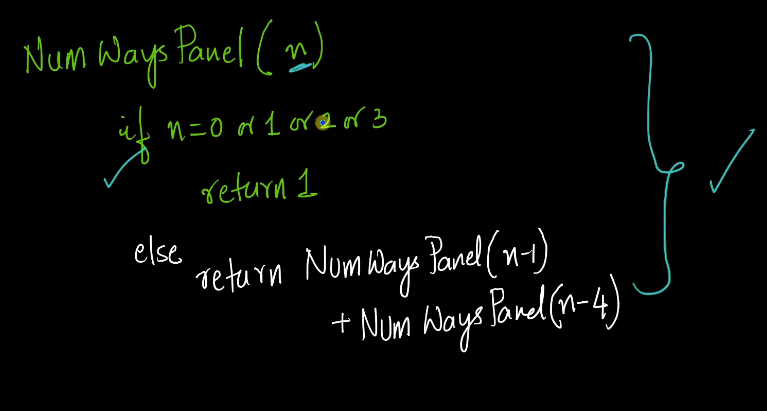 Num Ways Panel (n)
if n=0 or 1 or 2 or 3
return 1
else return Num Ways Panel (n-1)
+ Num Ways Panel (n-4)